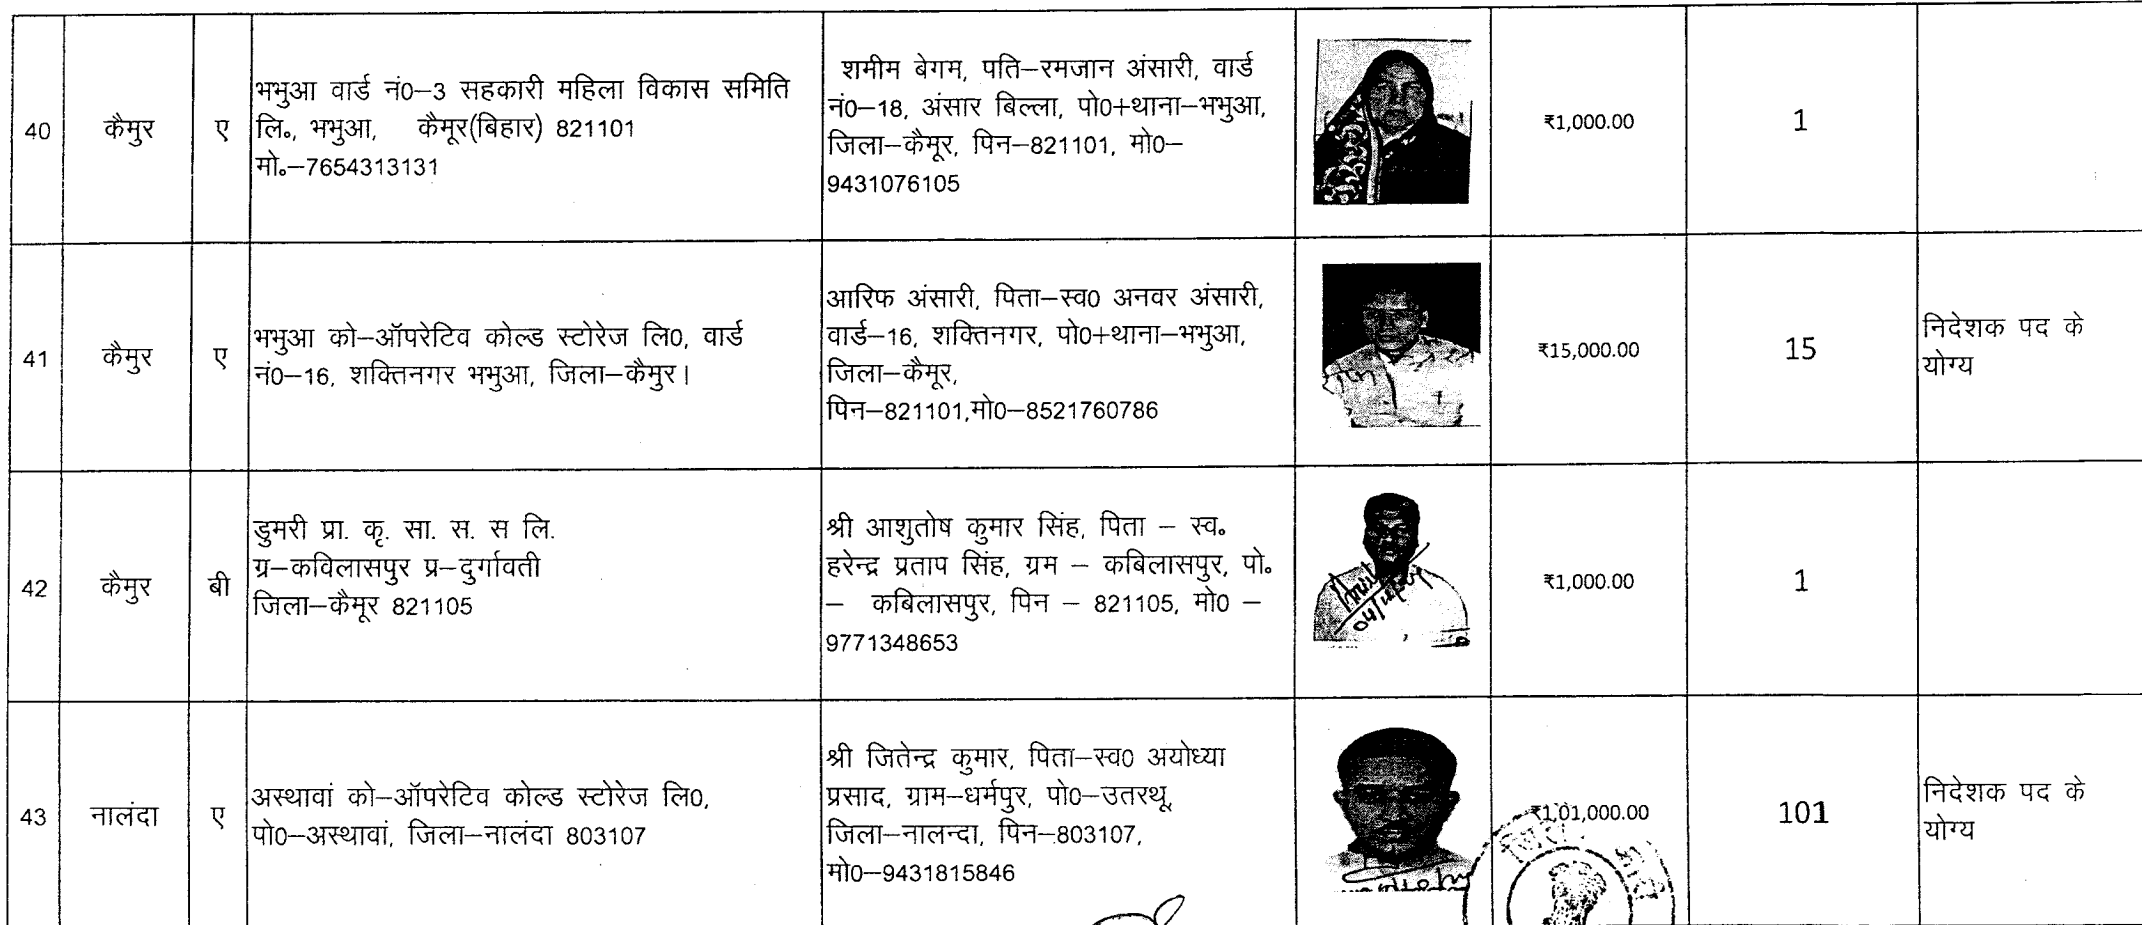 40
कैमुर
ए
भभुआ वार्ड नं0–3 सहकारी महिला विकास समिति
लि०, भभुआ, कैमूर(बिहार) 821101
मो०–7654313131
शमीम बेगम, पति–रमजान अंसारी, वार्ड
नं0–18, अंसार बिल्ला, पो0+थाना–भभुआ,
जिला–कैमूर, पिन–821101, मो0–
9431076105
₹1,000.00
1
41
कैमुर
ए
भभुआ को–ऑपरेटिव कोल्ड स्टोरेज लि0, वार्ड
नं0–16, शक्तिनगर भभुआ, जिला–कैमुर।
आरिफ अंसारी, पिता–स्व0 अनवर अंसारी,
वार्ड–16, शक्तिनगर, पो0+थाना–भभुआ,
जिला–कैमूर,
पिन–821101,मो0–8521760786
₹15,000.00
15
निदेशक पद के
योग्य
42
कैमुर
बी
डुमरी प्रा. कृ. सा. स. स लि.
ग्र–कविलासपुर प्र–दुर्गावती
जिला–कैमूर 821105
श्री आशुतोष कुमार सिंह, पिता – स्व०
हरेन्द्र प्रताप सिंह, ग्रम – कबिलासपुर, पो०
– कबिलासपुर, पिन – 821105, मो0 –
9771348653
₹1,000.00
1
43
नालंदा
ए
अस्थावां को–ऑपरेटिव कोल्ड स्टोरेज लि0,
पो0–अस्थावां, जिला–नालंदा 803107
श्री जितेन्द्र कुमार, पिता–स्व0 अयोध्या
प्रसाद, ग्राम–धर्मपुर, पो0–उतरथू,
जिला–नालन्दा, पिन–803107,
मो0–9431815846
₹1,01,000.00
101
निदेशक पद के
योग्य